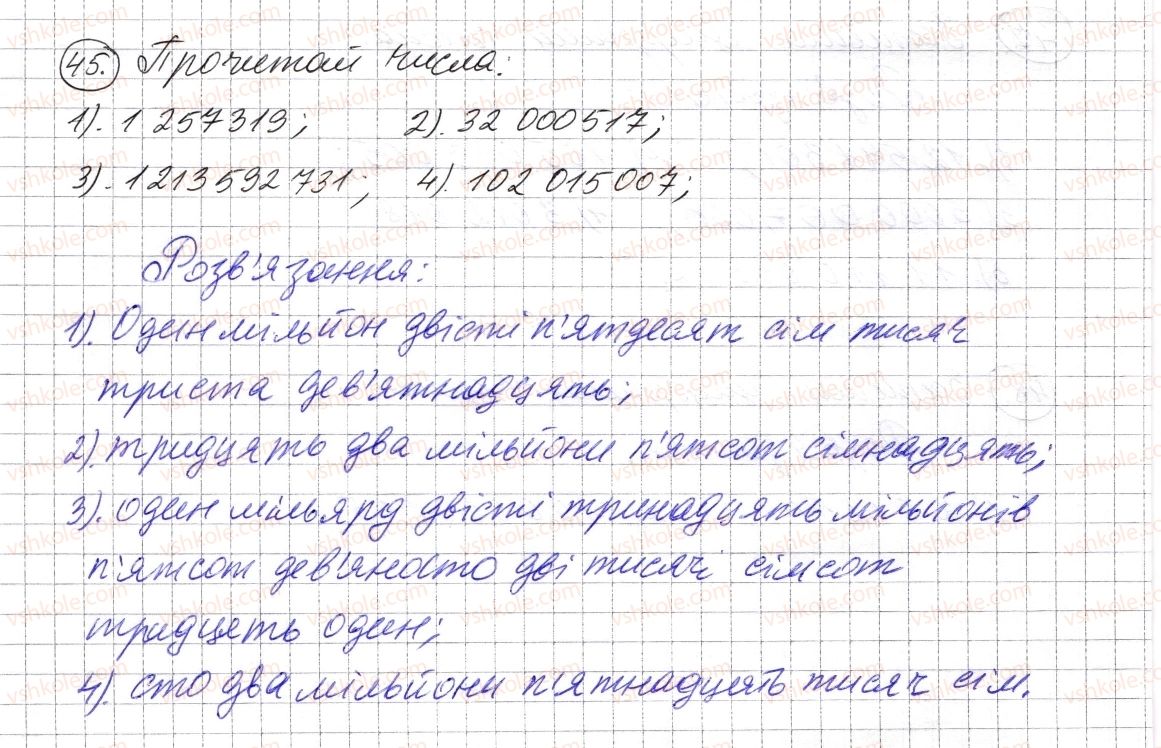 45. Прочитай числа:
1). 1 257319; 2). 32 000517;
3). 1213592731; 4). 102 015007;
Розв'язання:
1). Один мільйон двісті п'ятдесят сім тисяч
триста дев'ятнадцять;
2). тридцять два мільйони п'ятсот сімнадцять;
3). один мільярд двісті тринадцять мільйонів
п'ятсот дев'яносто дві тисячі сімсот
тридцять один;
4). сто два мільйони п'ятнадцять тисяч сім.